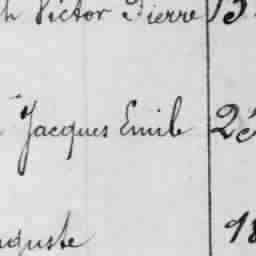 h Victor Pierre 15
Jacques Emile 23
uguste 18